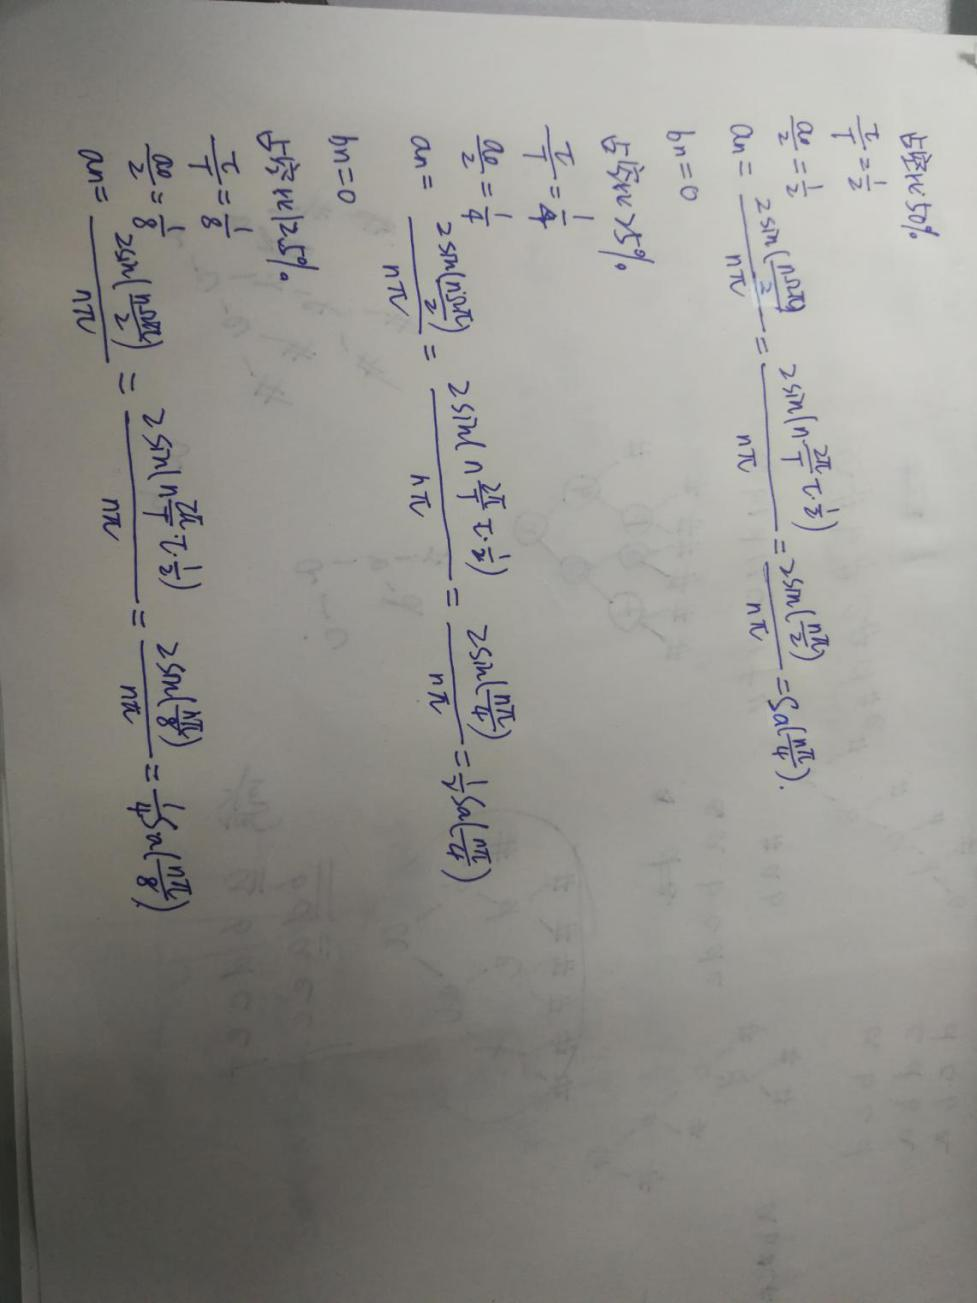 占空比50%
τ/T = 1/2
a₀/2 = 1/2
an = 2sin(nωτ/2)/nπ = 2sin(n·2π/T·τ·1/2)/nπ = 2sin(nπ/2)/nπ = Sa(nπ/4).
bn=0
占空比25%
τ/T = 1/4
a₀/2 = 1/4
an = 2sin(nωτ/2)/nπ = 2sin(n 2π/T·τ·1/2)/nπ = 2sin(nπ/4)/nπ = 1/2 Sa(nπ/4)
bn=0
占空比12.5%
τ/T = 1/8
a₀/2 = 1/8
an = 2sin(nωτ/2)/nπ = 2sin(n 2π/T·τ·1/2)/nπ = 2sin(nπ/8)/nπ = 1/4 Sa(nπ/8)